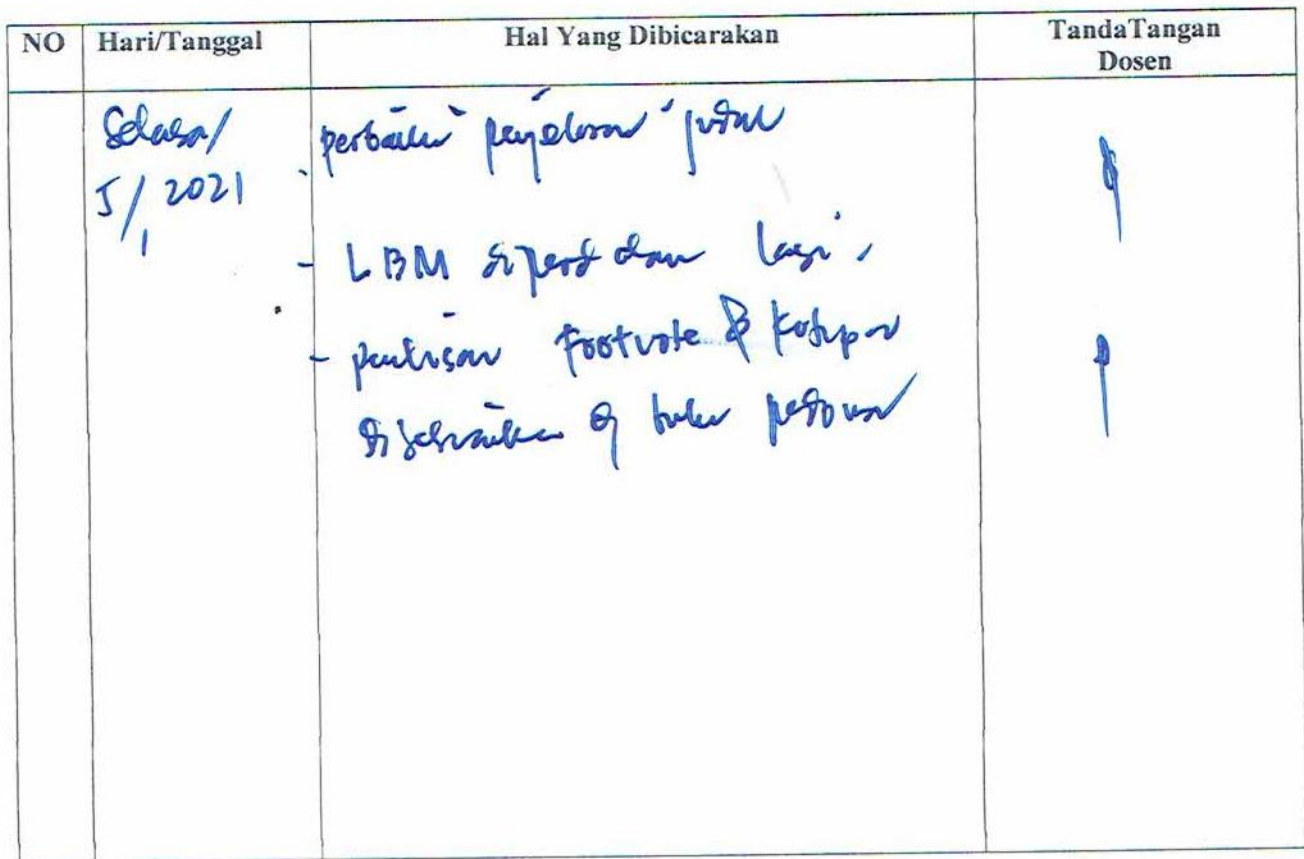 NO Hari/Tanggal Hal Yang Dibicarakan TandaTangan
Dosen
Selasa/
5/1 2021
- perbaiki penjelasan judul
- LBM diperdalam lagi.
- penulisan Footnote & kutipan
disesuaikan dg buku pedoman